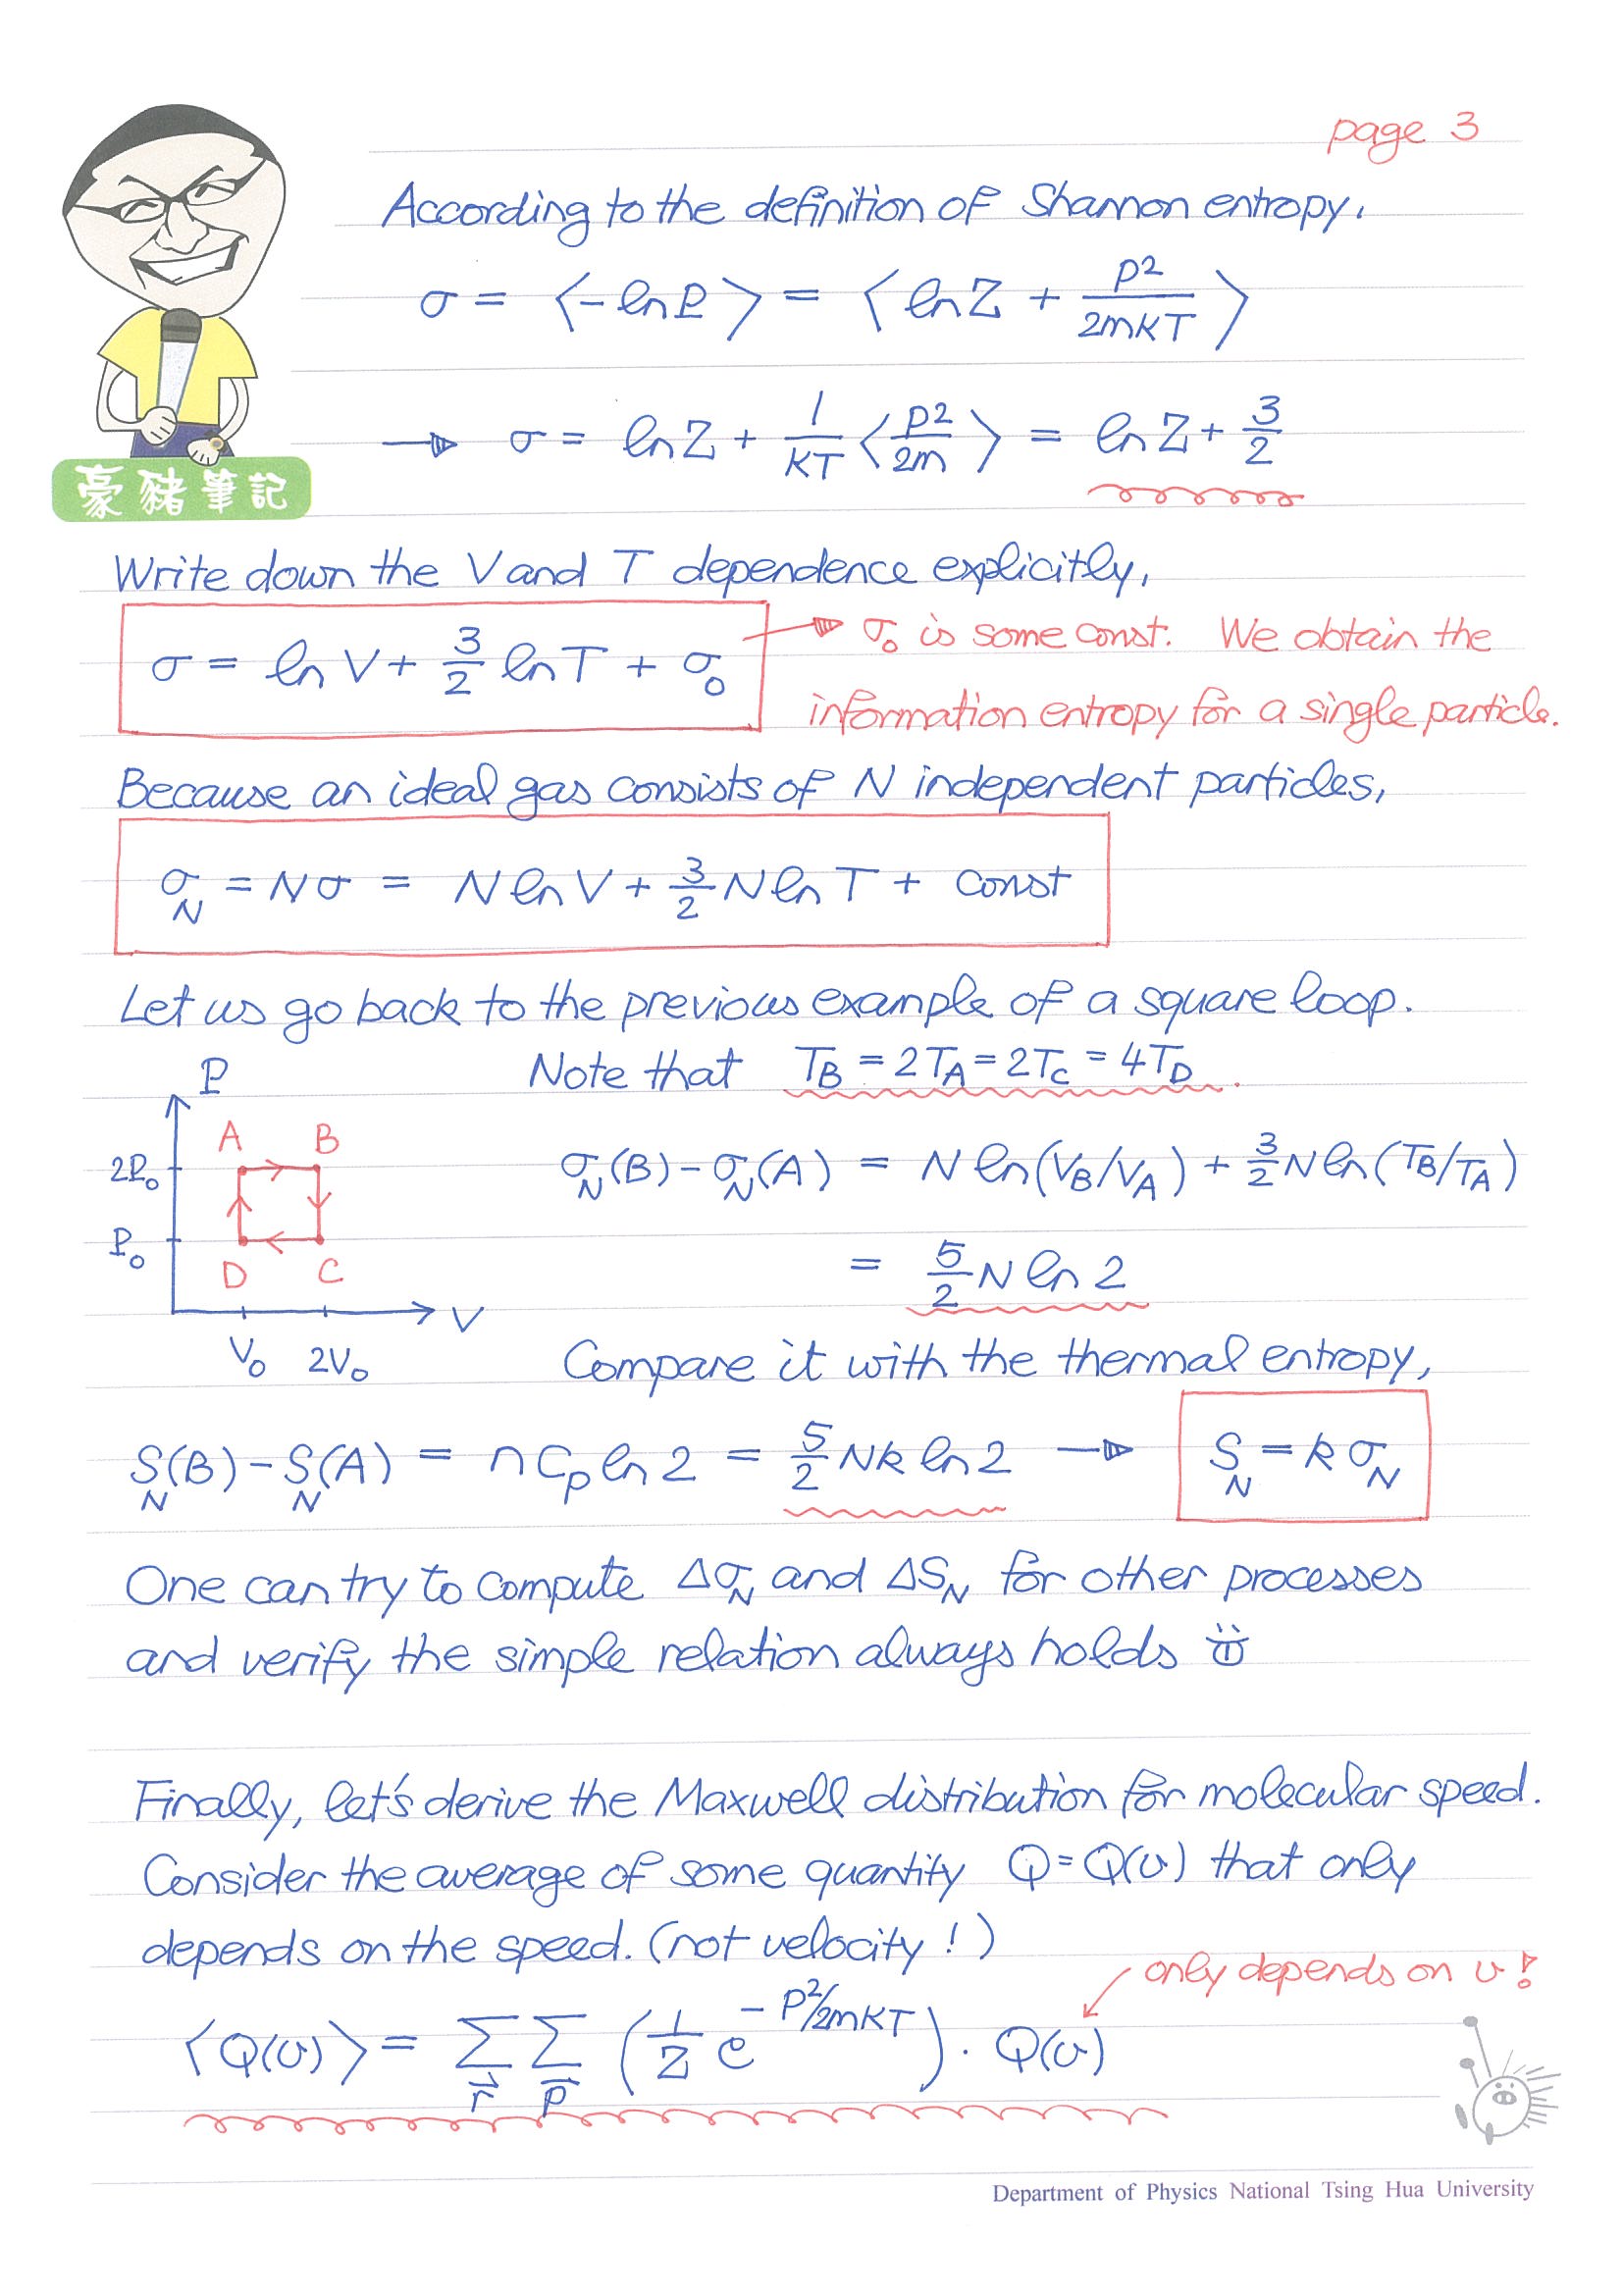 page 3
According to the definition of Shannon entropy,
σ = ⟨-ln P⟩ = ⟨ln Z + p²/2mkT⟩
→ σ = ln Z + 1/kT ⟨p²/2m⟩ = ln Z + 3/2
豪豬筆記
Write down the V and T dependence explicitly,
σ = ln V + 3/2 ln T + σ₀ → σ₀ is some const. We obtain the
information entropy for a single particle.
Because an ideal gas consists of N independent particles,
σ_N = Nσ = N ln V + 3/2 N ln T + const
Let us go back to the previous example of a square loop.
P
Note that T_B = 2T_A = 2T_C = 4T_D.
A B
2P₀
σ_N(B) - σ_N(A) = N ln(V_B/V_A) + 3/2 N ln(T_B/T_A)
P₀
D C
= 5/2 N ln 2
V
V₀ 2V₀
Compare it with the thermal entropy,
S_N(B) - S_N(A) = n C_p ln 2 = 5/2 Nk ln 2 → S_N = k σ_N
One can try to compute Δσ_N and ΔS_N for other processes
and verify the simple relation always holds
Finally, let's derive the Maxwell distribution for molecular speed.
Consider the average of some quantity Q = Q(v) that only
depends on the speed. (not velocity!)
only depends on v!
⟨Q(v)⟩ = Σ_r⃗ Σ_p⃗ (1/Z e^(-p²/2mkT)) · Q(v)
Department of Physics National Tsing Hua University